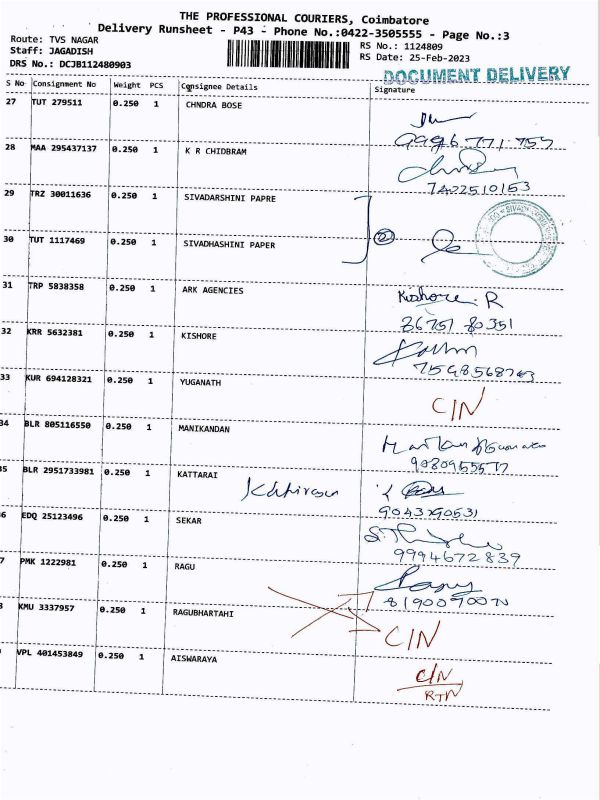 THE PROFESSIONAL COURIERS, Coimbatore
Delivery Runsheet - P43 - Phone No.:0422-3505555 - Page No.:3
Route: TVS NAGAR
Staff: JAGADISH
DRS No.: DCJB112480903
RS No.: 1124809
RS Date: 25-Feb-2023
DOCUMENT DELIVERY
S No Consignment No Weight PCS Consignee Details Signature
27 TUT 279511 0.250 1 CHNDRA BOSE
28 MAA 295437137 0.250 1 K R CHIDBRAM
7402510153
29 TRZ 30011636 0.250 1 SIVADARSHINI PAPRE
30 TUT 1117469 0.250 1 SIVADHASHINI PAPER
2
31 TRP 5838358 0.250 1 ARK AGENCIES Kishore. R
86751 80351
32 KRR 5632381 0.250 1 KISHORE
7598568763
33 KUR 694128321 0.250 1 YUGANATH C/N
34 BLR 805116550 0.250 1 MANIKANDAN
35 BLR 2951733981 0.250 1 KATTARAI Kathiravan
9043790531
6 EDQ 25123496 0.250 1 SEKAR
9994672839
7 PMK 1222981 0.250 1 RAGU
8 KMU 3337957 0.250 1 RAGUBHARTAHI C/N
VPL 401453849 0.250 1 AISWARAYA C/N
RTN